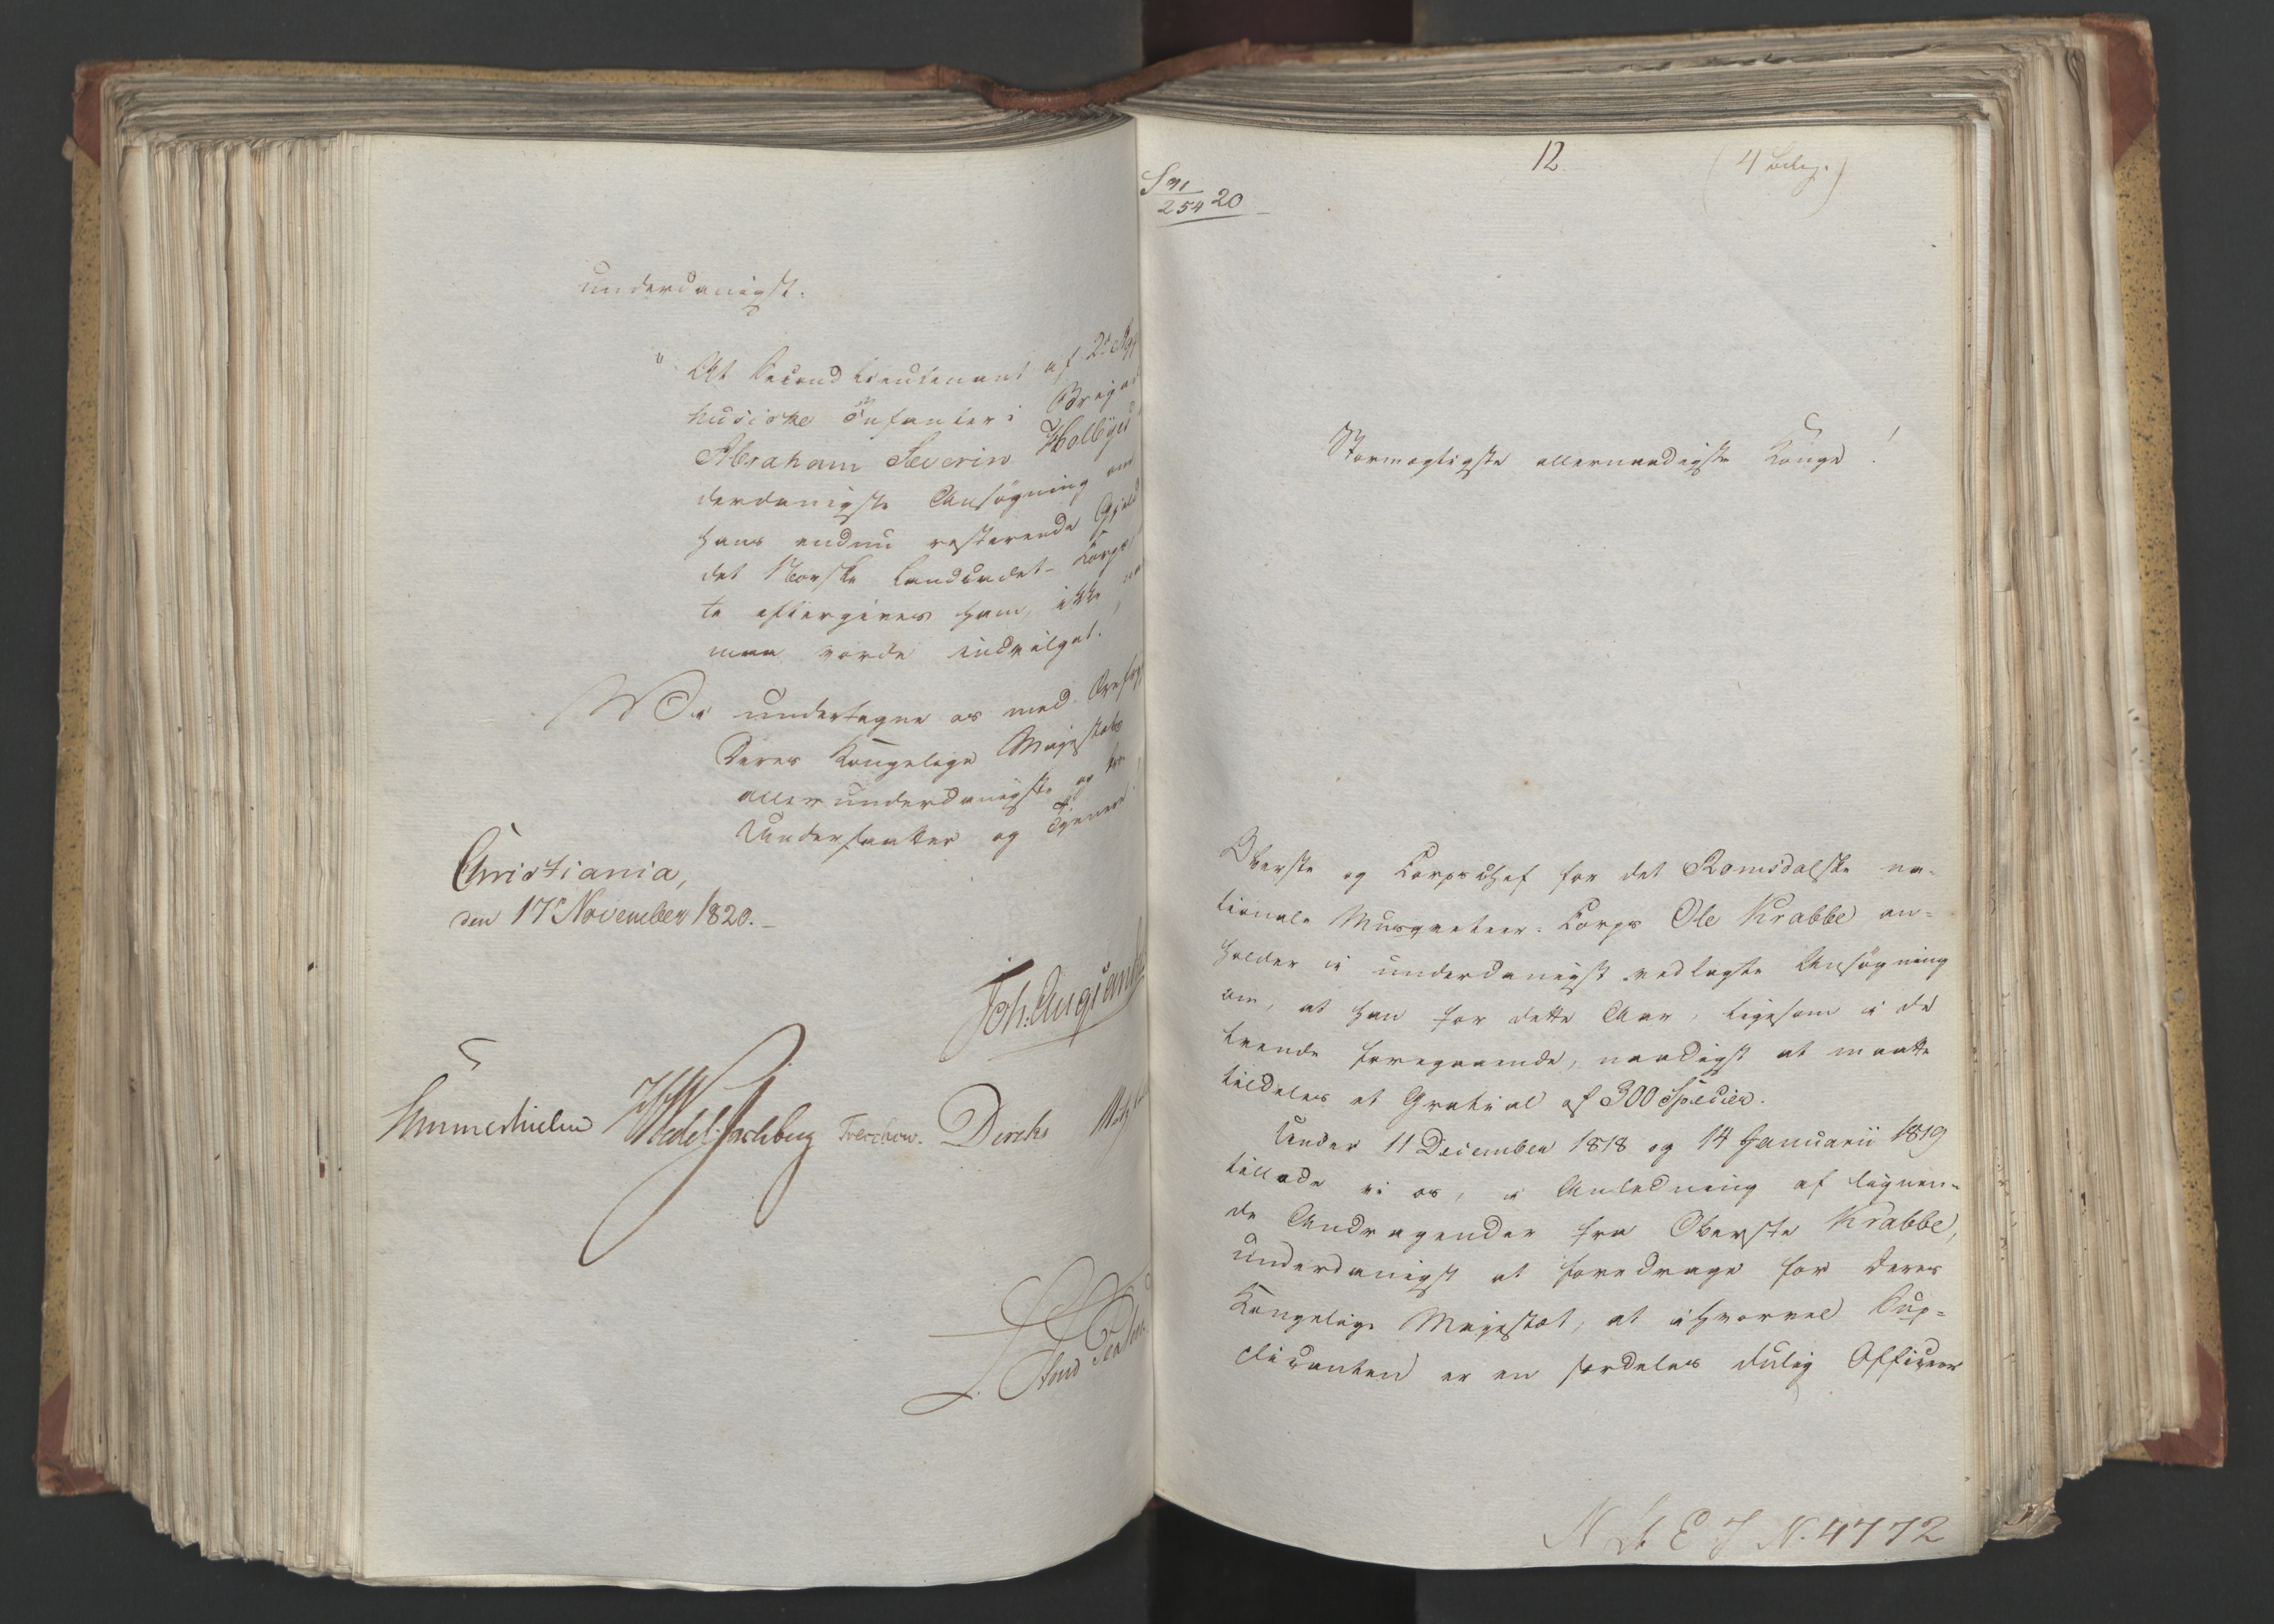 underdanigst:
" At Secondlieutenant af 2d Agg
husiske Infanteri Brigad
Abraham Severin Holbye
derdanigste Ansøgning om
hans endnu resterende Gjæld
det Norske Landcadet-Corps
te eftergives ham, ikke
maa vorde indvilget.
Vi undertegne os med
Deres Kongelige Majestæts
allerunderdanigste og
Undersaatter og Tjenere
Christiania,
den 17de November 1820.
Joh. Aug. Sandels
Sommerhielm Wedel Jarlsberg Treschow. Diriks Motzfeldt
12
(4 Bilag.)
S 91
254 20
Stormægtigste allernaadigste Konge!
Oberste og Corpschef for det Romsdalske na-
tionale Musqueteer-Corps Ole Krabbe an=
holder i underdanigst vedlagte Ansøgning
om, at han for dette Aar, ligesom i de
tvende foregaaende, naadigst at maatte
tildeles et Gratial af 300 Specier.
Under 11 December 1818 og 14 Januarii 1819
tillode vi os, i Anledning af lignen=
de Andragender fra Oberste Krabbe,
underdanigst at foredrage for Deres
Kongelige Majestæt, at ihvorvel Sup=
plicanten er en særdeles duelig Officeer
N. 4772